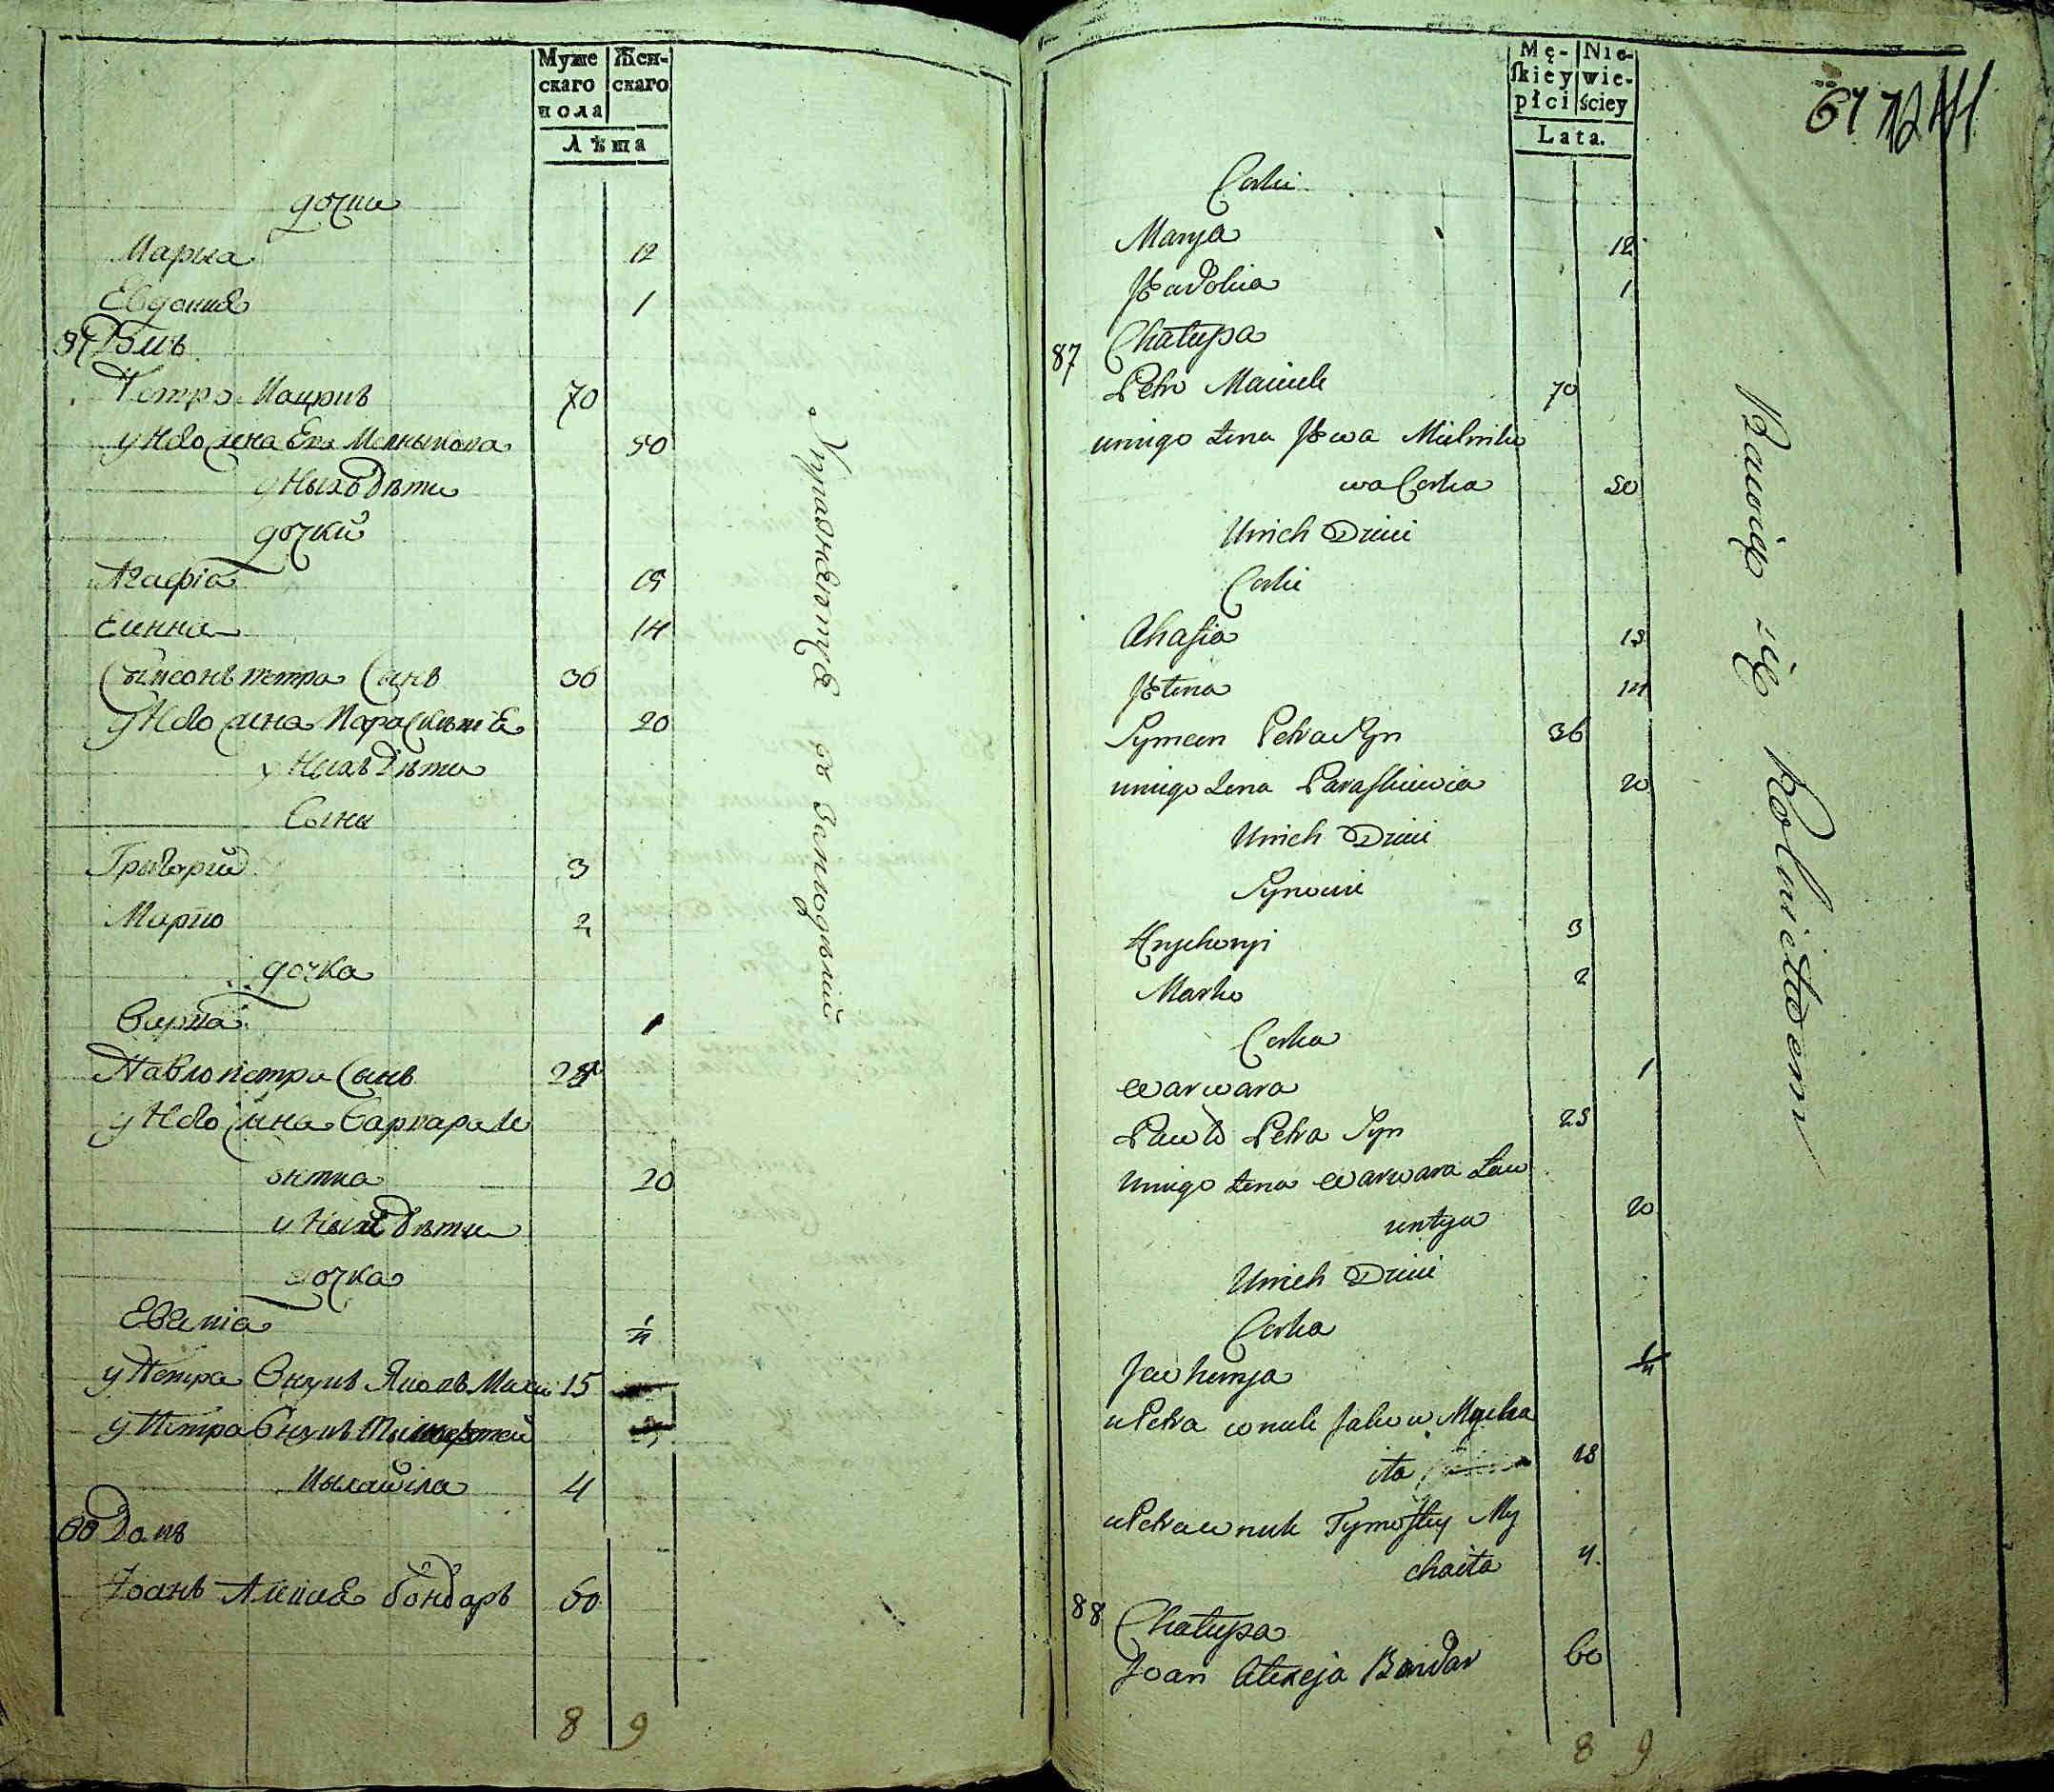 Муже Жен-
скаго скаго
пола
Лѣта
дочки
Мариа 12
Евдокия 1
87 Домъ
Петро Мацюкъ 70
у Него жена Ева Мелныкова 50
у Ныхъ Дѣти
дочки
Агафіа 15
Елина 14
Сымеонъ петра Сынъ 36
у Него жена Параскивиа 20
у Ныхъ Дѣти
Сыни
Грыгорий 3
Марко 2
дочка
Варвара 1
Павло петра Сынъ 25
у Него жена Варвара Ле
онтиа 20
у Ныхъ Дѣти
дочка
Евгениа 1/4
у Петра Внукъ Яковъ Миха 15
у Петра Внукъ Тымофтей
Мыхайла 4
88 Домъ
Іоанъ Алексея бондаръ 60
8 9
Упражняются въ Хлѣбопашествѣ
Mę- Nie-
skiey wie-
płci ściey
Lata.
67
Corki
Marya 12
Jewdokia 1
87 Chałupa
Petro Maciuk 70
uniego żena Jewa Mielniko
wa Corka 50
Unich Dzieci
Corki
Ahafia 15
Jelena 14
Symeon Petra Syn 36
uniego żena Paraskiewia 20
Unich Dzieci
Synowie
Hryhoryi 3
Marko 2
Corka
Warwara 1
Pawło Petra Syn 25
uniego żena Warwara Lew
untya 20
Unich Dzieci
Corka
Jewhenija 1/4
u Petra wnuk Jakow Mycha
iła 15
u Petra wnuk Tymoftey My
chaiła 4.
88 Chałupa
Joan Alexeja Bondar 60
8 9
Bawią się Rolnictwem